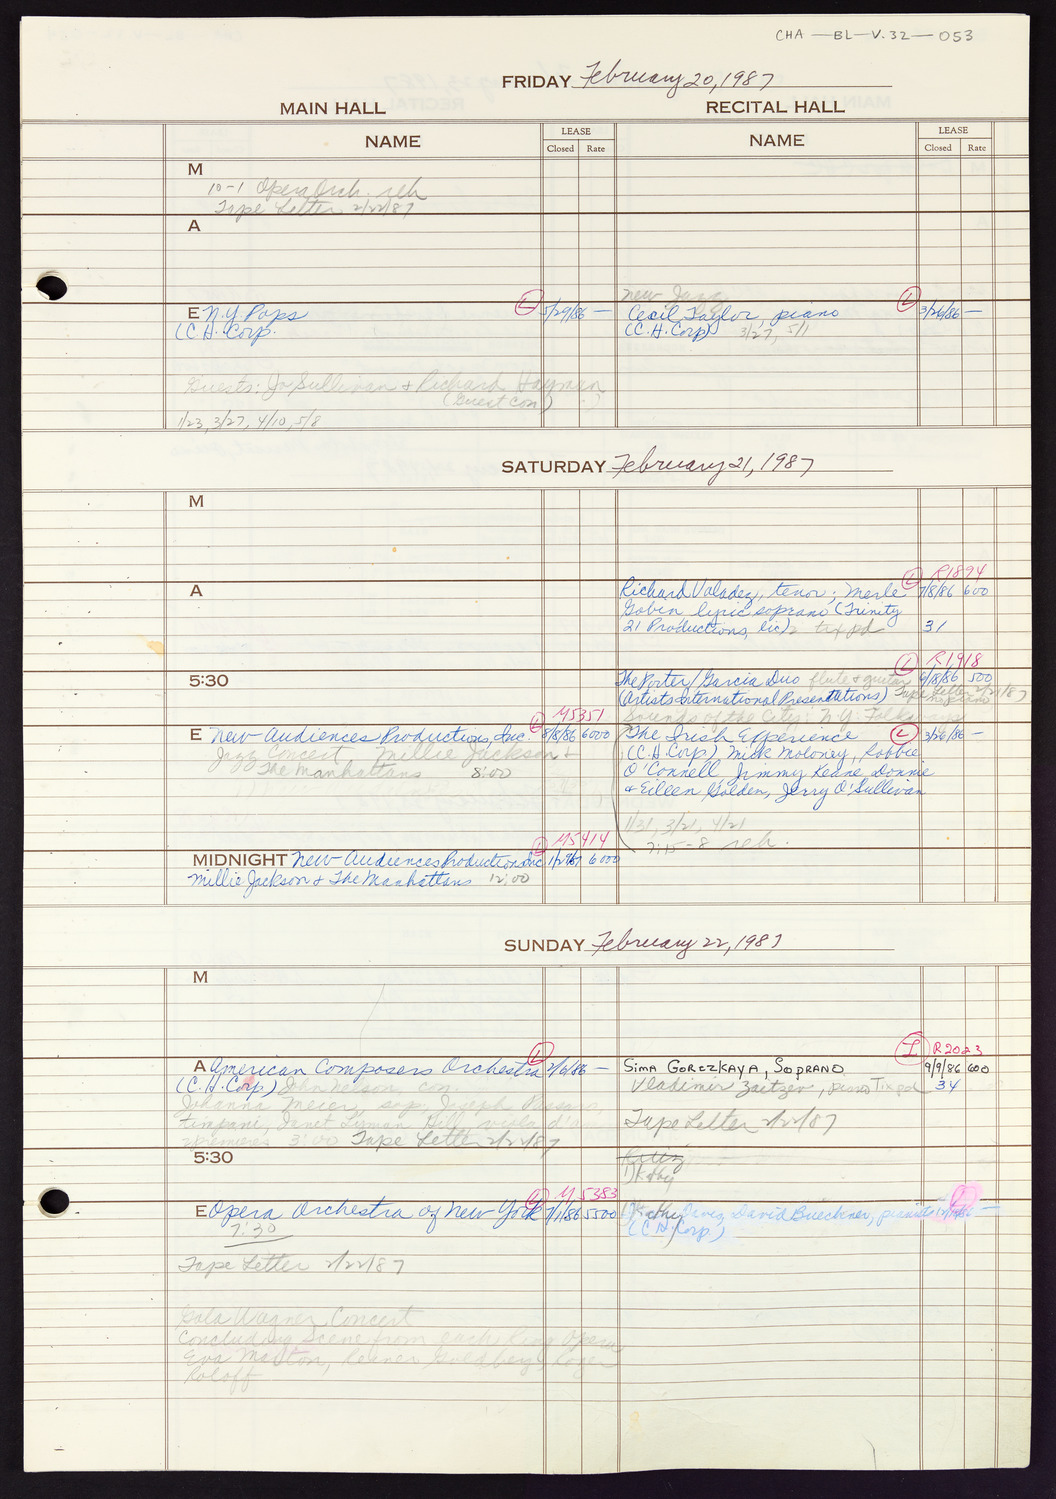 CHA — BL — V.32 — 053
FRIDAY February 20, 1987
MAIN HALL
RECITAL HALL
NAME
LEASE
Closed Rate
NAME
LEASE
Closed Rate
M
10-1 Opera Orch. reh
Tape Letter 2/22/87
A
E N.Y. Pops
(L) 5/29/86 —
(C.H. Corp.
Guests: Jo Sullivan + Richard Hayman
(Guest Con)
1/23, 3/27, 4/10, 5/8
New Jazz
Cecil Taylor, piano
(L) 3/26/86 —
(C.H. Corp) 3/27, 5/1
SATURDAY February 21, 1987
M
A
(L) R1894
Richard Valadez, tenor; Merle 7/8/86 600
Gobin lyric soprano (Trinity
21 Productions, Inc) tix pd 31
5:30
(L) R1918
The Porter/Garcia Duo flute + guitar 6/8/86 500
(Artists International Presentations) Tape Letter 2/21/87
no piano
(L) M5351
E New Audiences Productions, Inc. 8/8/86 6000
Jazz Concert Millie Jackson +
The Manhattans 8:00
Sounds of the City: N.Y. Folk
The Irish Experience (L) 3/26/86 —
(C.H. Corp) Mick Moloney, Robbie
O'Connell, Jimmy Keane, Donnie
+ Eileen Golden, Jerry O'Sullivan
1/31, 3/21, 4/21
7:15-8 reh.
(L) M5414
MIDNIGHT New Audiences Productions Inc 6000
Millie Jackson + The Manhattans 12:00
SUNDAY February 22, 1987
M
A American Composers Orchestra (L) 2/6/86 —
(C.H. Corp) John Nelson, con.
Johanna Meier, sop. Joseph Passaro,
timpani, Janet Lyman Hill, viola d'am
premieres 3:00 Tape Letter 2/22/87
(L) R2023
SIMA GORCZKAYA, SOPRANO 9/9/86 600
Vladimir Zaitzev, piano Tix pd 34
Tape Letter 2/22/87
5:30
1) Kathy
(L) M5383
E Opera Orchestra of New York 7/1/86 5500
7:30
Tape Letter 2/22/87
Gala Wagner Concert
Concluding Scene from each Ring Opera
Eva Marton, Reiner Goldberg, Roger
Roloff
David Buechner, pianist —
(C.H. Corp.)